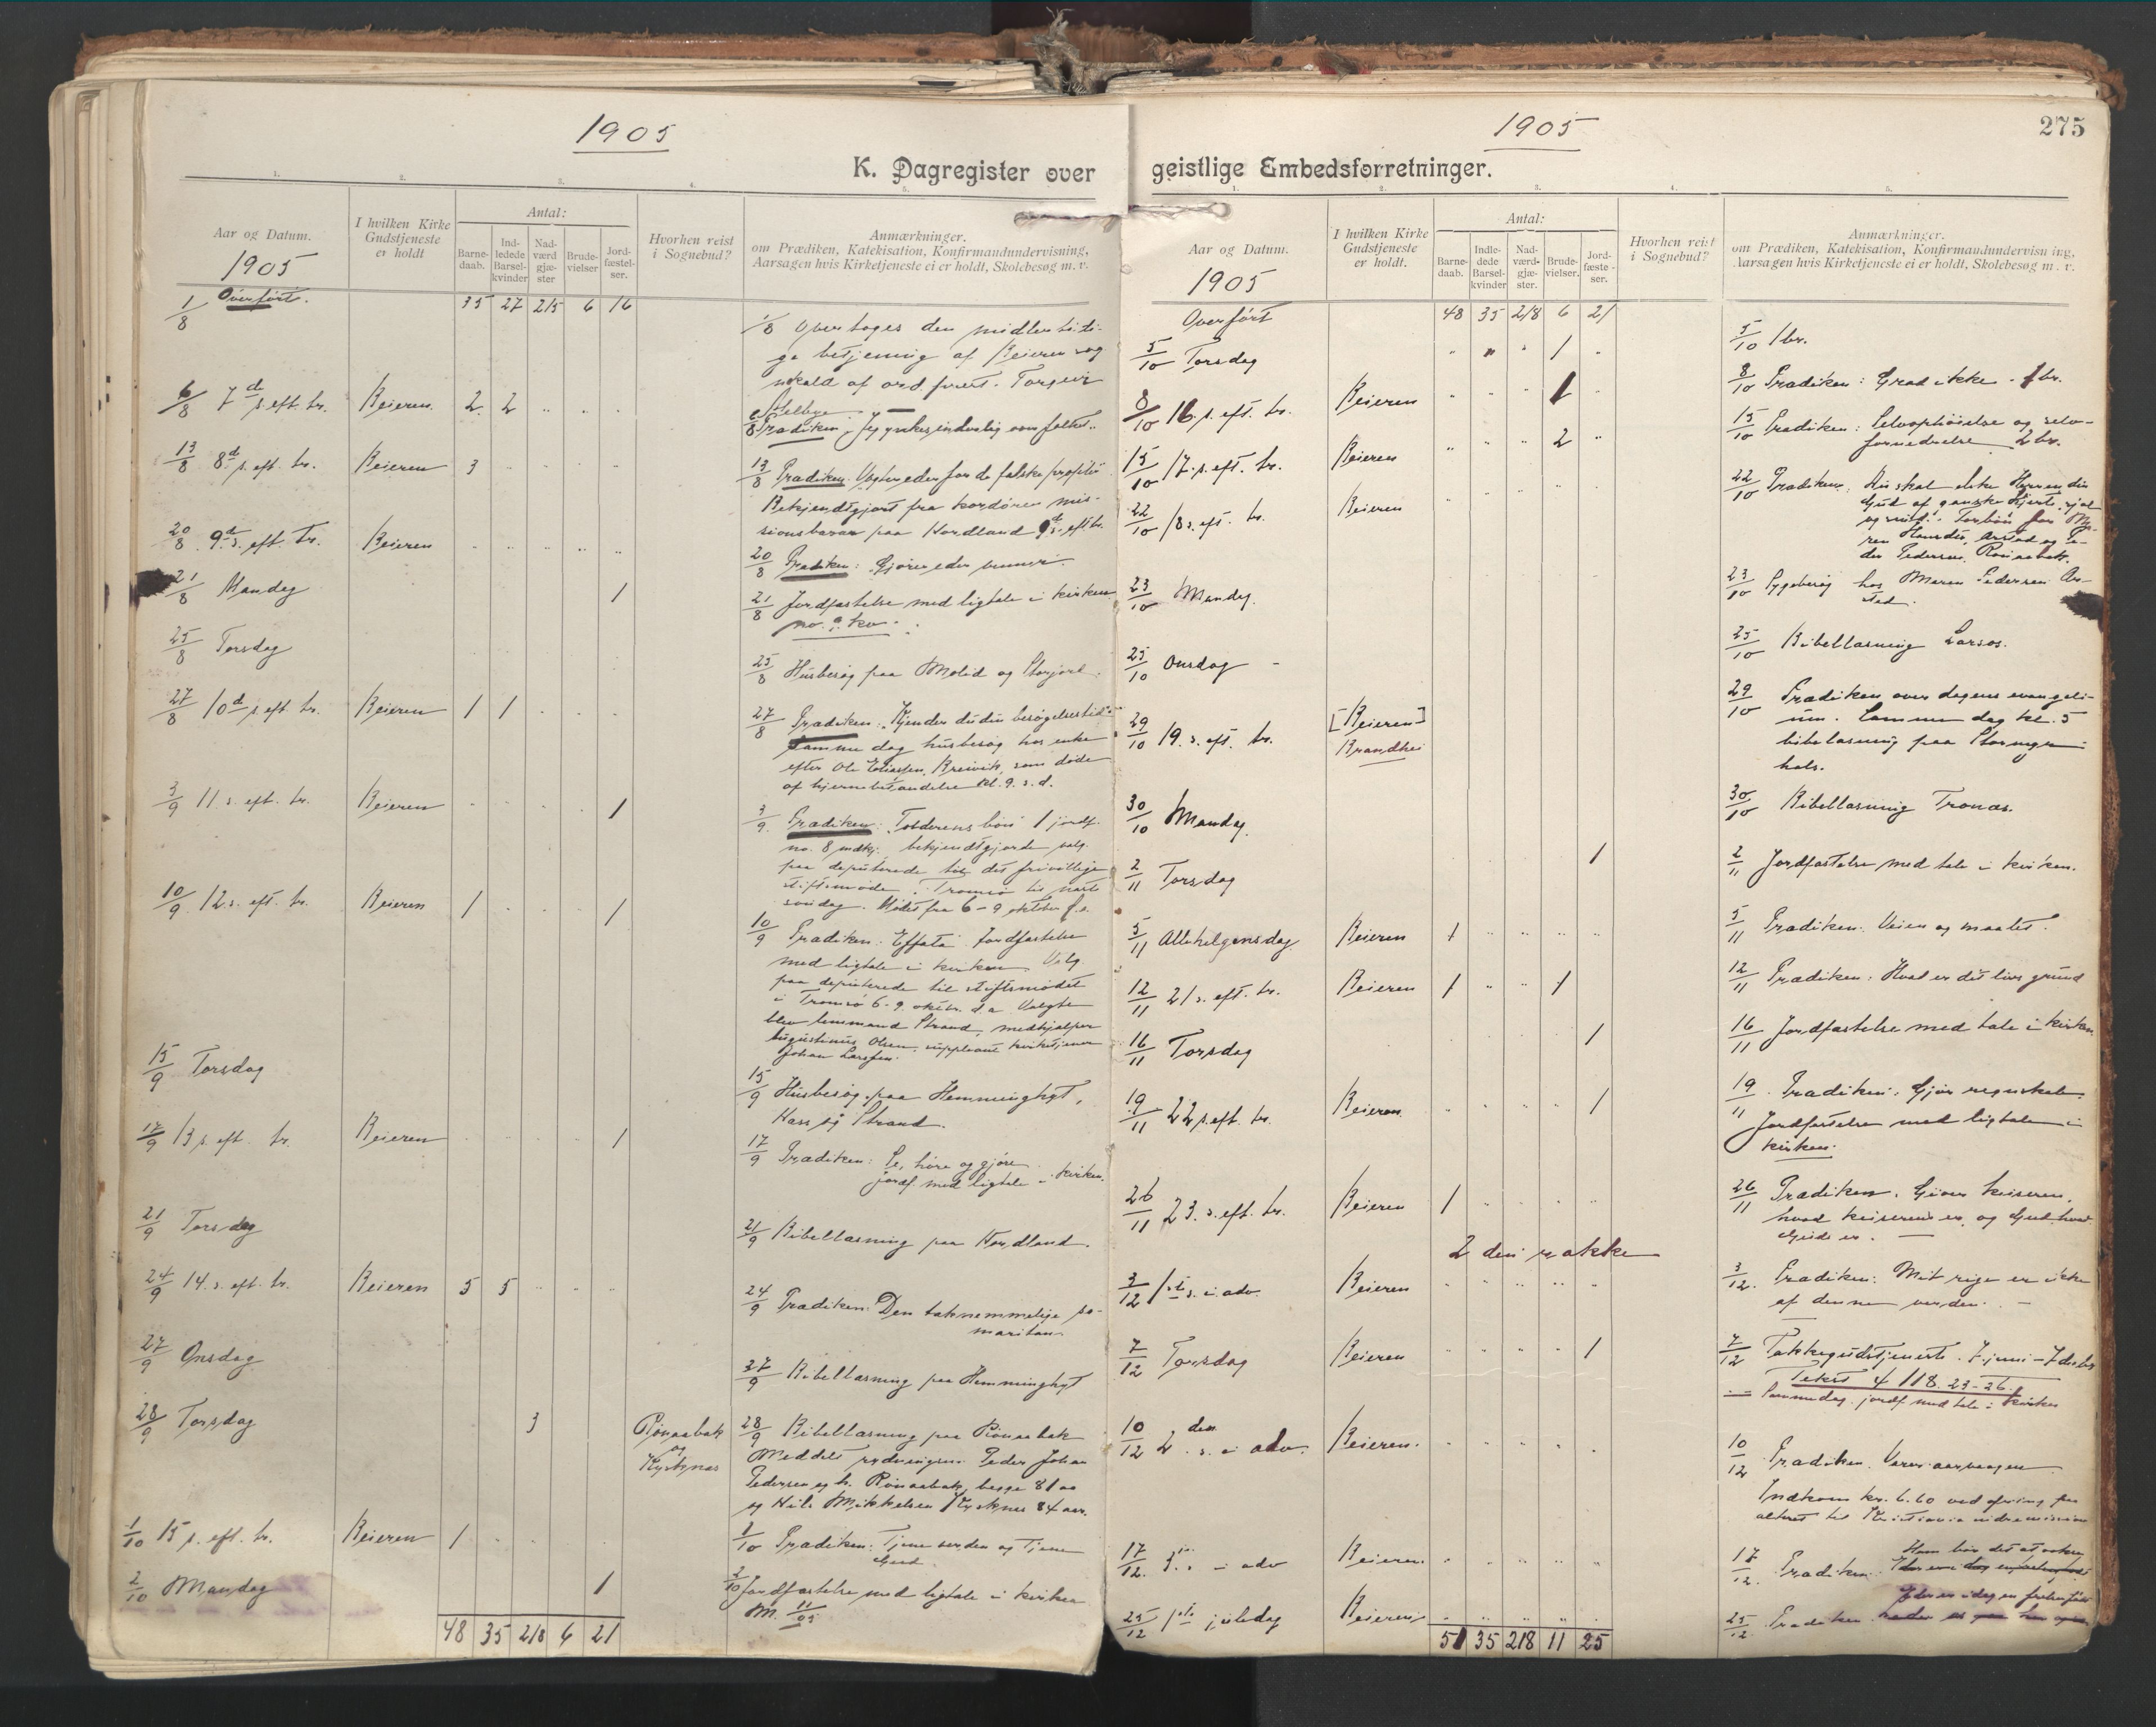 1905
K. Dagregister over
1. 2. 3. 4. 5.
Aar og Datum.
I hvilken Kirke Gudstjeneste er holdt
Antal:
Barne-daab.
Ind-ledede Barsel-kvinder
Nad-værd gjæ-ster
Brude-vielser
Jord-fæstel-ser.
Hvorhen reist i Sognebud?
Anmærkninger.
om Prædiken, Katekisation, Konfirmandundervisning,
Aarsagen hvis Kirketjeneste ei er holdt, Skolebesøg m. v.
1905
1/8 Overført. 35 27 215 6 16
1/8 Overtoges den midlertidi-
ge betjening af Beieren sog
nekald af ord. præst. Torgeir
Stelbye
6/8 7d s. eft. tr. Beieren. 2 2 " " "
6/8 Prædiken: Jeg ynkes inderlig over folket.
13/8 8d s. eft. tr. Beieren 3
13/8 Prædiken. Vogter eder for de falske profeter
Bekjendtgjort fra kordøren mis-
sionsbazar paa Nordland 9d s. eft. tr.
20/8 9d s. eft. tr. Beieren
20/8 Prædiken: Gjører eder venner.
21/8 Mandag 1
21/8 Jordfæstelse med ligtale i kirken.
no. 9 kv.
25/8 Torsdag
25/8 Husbesøg paa Molid og Storjord.
27/8 10d s. eft. tr. Beieren 1 1
27/8 Prædiken: Kjender du din besøgelsestid
Samme dag husbesøg hos enke
efter Ole Eliassen, Breivik, som døde
af hjernebetændelse kl. 9. s. d.
3/9 11 s. eft. tr. Beieren 1
3/9. Prædiken: Tolderens bøn 1 jordf.
no. 8 mdkj. bekjendtgjorde valg
paa deputerede til det frivillige
stiftsmøde i Tromsø til næste
søndag. Mødet fra 6-9 oktober f. s.
10/9 12. s. eft. tr. Beieren 1 1
10/9 Prædiken: Effata. Jordfæstelse
med ligtale i kirken. Valg
paa deputerede til stiftsmødet
i Tromsø 6-9 oktbr. d. a. Valgte
blev lensmand Strand, medhjælper
Augustinus Olsen, suppleant kirketjener
Johan Larssen.
15/9 Torsdag
15/9 Husbesøg paa Hemminghyt,
og Strand.
17/9 13 s. eft. tr. Beieren 1
17/9 Prædiken: Se, høre og gjøre.
jordf. med ligtale i kirken.
21/9 Torsdag
21/9 Bibellæsning paa Nordland.
24/9 14. s. eft. tr. Beieren 5 5
24/9 Prædiken: Den taknemmelige sa-
maritan.
27/9 Onsdag
27/9 Bibellæsning paa Hemminghyt
28/9 Torsdag 3 Rönaabak
og
28/9 Bibellæsning paa Rönaabak
Peder Johan
Pedersen og h. Rönaabak, begge 81 aar
og Nils Mikkelsen 84 aar.
1/10 15 s. eft. tr. Beieren 1
1/10 Prædiken: Tjene verden og tjene
Gud.
2/10 Mandag 1
2/10 Jordfæstelse med ligtale i kirken
M. 11/05
48 35 218 6 21
1905
275
geistlige Embedsforretninger.
1. 2. 3. 4. 5.
Aar og Datum.
I hvilken Kirke Gudstjeneste er holdt.
Antal:
Barne-daab.
Indle-dede Barsel-kvinder
Nad-værd-gjæ-ster.
Brude-vielser.
Jord-fæste-ser.
Hvorhen reist i Sognebud?
Anmærkninger.
om Prædiken, Katekisation, Konfirmandundervisning,
Aarsagen hvis Kirketjeneste ei er holdt, Skolebesøg m. v.
1905
Overført 48 35 218 6 21
5/10 Torsdag " " " 1 "
5/10 1 br.
8/10 16 s. eft. tr. Beieren 1
8/10 Prædiken: Græd ikke. 1 br.
15/10 17. s. eft. tr. Beieren 2
15/10 Prædiken: Selvophøielse og selv-
fornedrelse 2 br.
22/10 18 s. eft. tr. Beieren
22/10 Prædiken: Du skal elske Herren din
Gud af ganske hjerte, sjæl
og sind. Forbøn for Ma-
ren Arstad og Pe-
der Pedersen Rönaabak.
23/10 Mandag.
23/10 Sygebesøg hos Maren Pedersen Ar-
stad.
25/10 Onsdag -
25/10 Bibellæsning Larsos.
29/10 19. s. eft. tr. [Beieren]
Brandhei
29/10 Prædiken over dagens evangeli-
um. Samme dag kl. 5
bibelæsning paa
hals.
30/10 Mandag.
30/10 Bibellæsning Tronæs.
2/11 Torsdag 1
2/11 Jordfæstelse med tale i kirken.
5/11 Allehelgensdag Beieren 1
5/11 Prædiken. Veien og maalet.
12/11 21 s. eft. tr. Beieren 1 " " 1
12/11 Prædiken: Hvad er dit livs grund
16/11 Torsdag 1
16/11 Jordfæstelse med tale i kirken
19/11 22 s. eft. tr. Beieren. 1
19/11 Prædiken: Gjør regnskab.
Jordfæstelse med ligtale i
kirken.
26/11 23. s. eft. tr. Beieren 1
26/11 Prædiken. Giver keiseren,
hvad keiserens er, og Gud, hvad
Guds er. —
2 den række
3/12 1ste s. i adv. Beieren
3/12. Prædiken: Mit rige er ikke
af denne verden. —
7/12 Torsdag Beieren 1
7/12 Takkegudstjeneste. 7 juni - 7 decbr
Tekst 118. 23-26.
Sammedag jordf. med tale i kirken
10/12 2 den s. i adv. Beieren.
10/12 Prædiken. Være aarvaagen
Indkom kr. 6.60 ved ofring paa
alteret til Kristiania indremission
17/12. 3. i adv Beieren.
17/12. Prædiken. Ham bør det at vokse
25/12 1ste juledag Beieren
25/12. Prædiken Eder er idag en frelser født
51 35 218 11 25